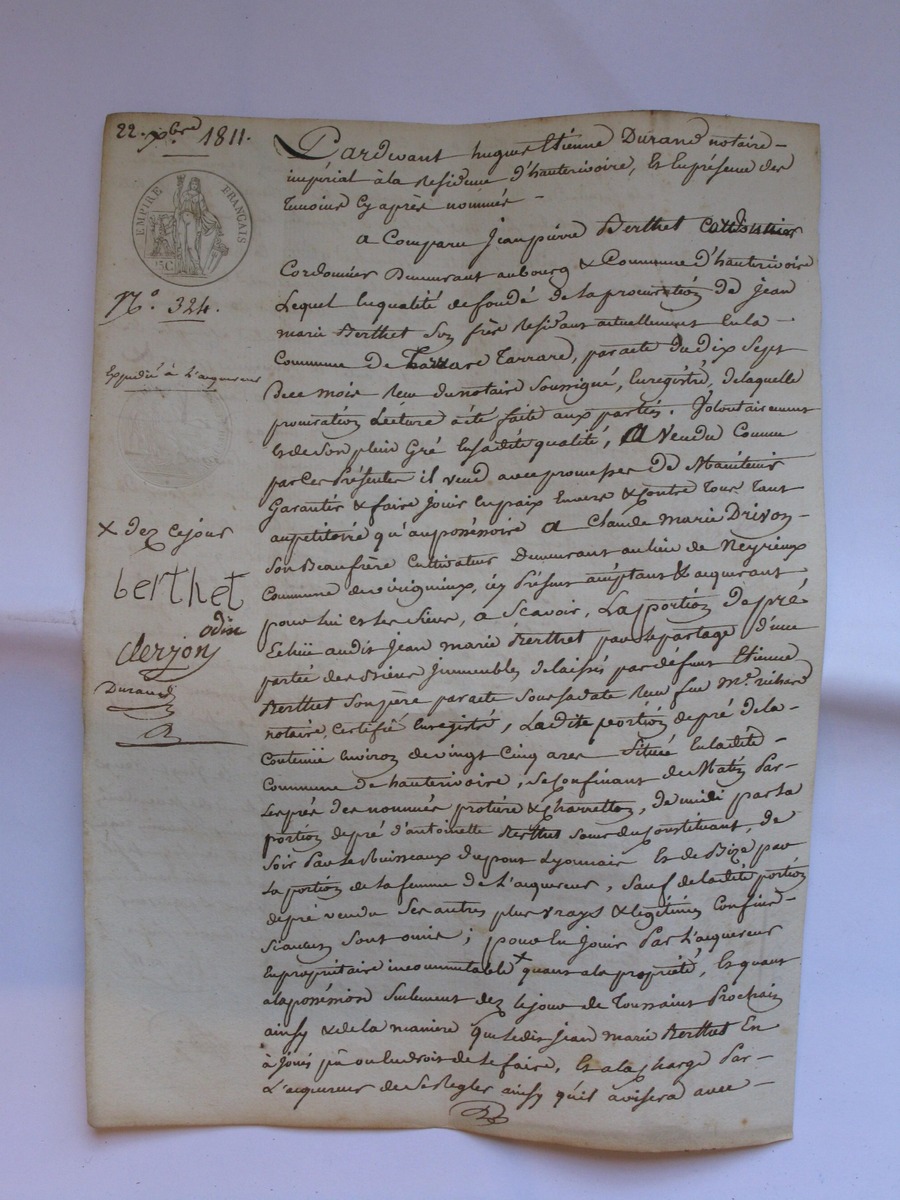 22. Xbre 1811.
EMPIRE FRANÇAIS
75C
N.º 324.
Expédié à L'acquereur
x dez cejour
berthet
odin
Clerjon
Durand
Pardevant hugues Etiénne Durand notaire
impérial à la Residence d'hauterivoire, Et En présence des
Temoins Cy après nommés
a Comparu Jean pierre Berthet
Cordonnier Demeurant au bourg & Commune d'hauterivoire
Lequel En qualité de fondé de la procuration de Jean
marie Berthet Son frère Residant actuellement En la
Commune de Tarrare, par acte du dix Sept
de ce mois Reçu du notaire Soussigné, Enregistré, de laquelle
procuration Lecture a été faite aux parties. Volontairement
et de Son plein Gré En sadite qualité, A Vendu Comme
par Ces Présentes il vend avec promesses de Maintenir
Garantir & faire Jouir en paix Envers & Contre Tous Tant
au petitoire qu'au possessoire A Claude Marie Drivon
Son Beaufrère Cultivateur Demeurant au lieu de Neyrieux
Commune de virigneux, icy Présent acceptant & acquerant
pour lui et les Siens, a Scavoir, La portion de pré
Echüe audit Jean marie Berthet par le partage d'une
partie des Biens Immeubles delaissés par défunt Etienne
Berthet Son père par acte Sous sa date Reçu feu Mᵉ. richard
notaire, Certifié Enregistré, La dite portion de pré de la
Contenüe Environ de vingt Cinq ares Située En ladite
Commune de hauterivoire, Se Confinant de Matin Par
Les prés des nommés protière & Charretton, de midi par la
portion de pré d'antoinette Berthet Sœur du Constituant, de
Soir Par le Ruisseaux du pont Lyonnais Et de Bize par
La portion de la femme de L'acquereur, Sauf de ladite portion
de pré vendu Ses autres plus vrays & legitimes Confins
Si aucuns Sont omis; pour En Jouir Par L'acquereur
En propriétaire incommutable x quant a la propriété, Et quant
a la possession Seulement dez le jour de Toussaint Prochain
ainsy & de la maniere que ledit Jean marie Berthet En
à Joüi pû ou En droit de le faire, Et a la Charge Par
L'acquereur de Se Regler ainsy qu'il avisera avec